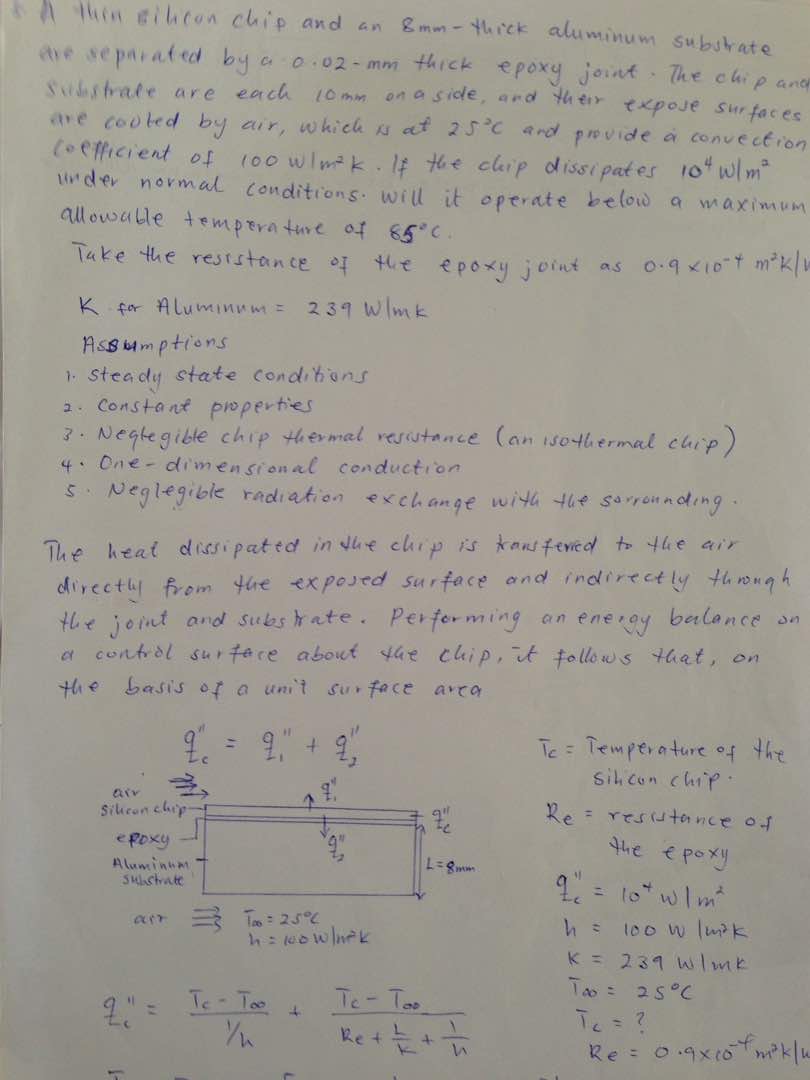 A thin silicon chip and an 8mm-thick aluminum substrate
are separated by a 0.02-mm thick epoxy joint. The chip and
substrate are each 10mm on a side, and their expose surfaces
are cooled by air, which is at 25°C and provide a convection
coefficient of 100 W/m²k. If the chip dissipates 10⁴ W/m²
under normal conditions. will it operate below a maximum
allowable temperature of 85°C.
Take the resistance of the epoxy joint as 0.9x10⁻⁴ m²K/W
K for Aluminum = 239 W/mk
Assumptions
1. Steady state conditions
2. Constant properties
3. Neglegible chip thermal resistance (an isothermal chip)
4. One-dimensional conduction
5. Neglegible radiation exchange with the sorrounding.
The heat dissipated in the chip is transfered to the air
directly from the exposed surface and indirectly through
the joint and substrate. Performing an energy balance on
a control surface about the chip, it follows that, on
the basis of a unit surface area
q"c = q"1 + q"2
air
silicon chip
epoxy
Aluminum
substrate
q"1
q"2
q"c
L = 8mm
air
T∞ = 25°C
h = 100 W/m²K
q"c = Tc - T∞ / 1/h + Tc - T∞ / Re + L/K + 1/h
Tc = Temperature of the
silicon chip.
Re = resistance of
the epoxy
q"c = 10⁴ W/m²
h = 100 W/m²k
K = 239 W/mk
T∞ = 25°C
Tc = ?
Re = 0.9x10⁻⁴ m²k/W